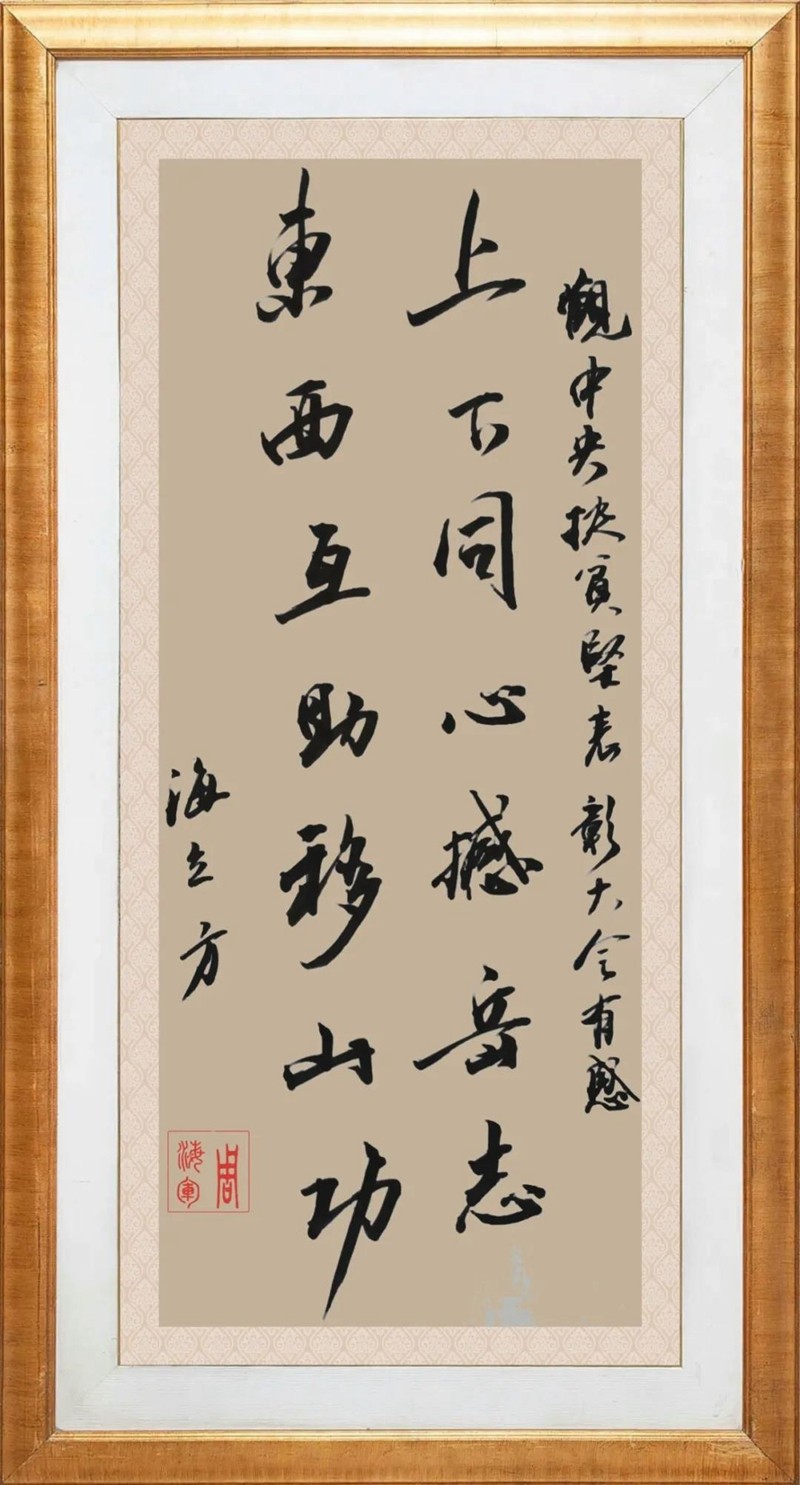 觀中央扶貧堅表彰大会有感
上下同心撼岳志
東西互助移山功
海立方
周海軍